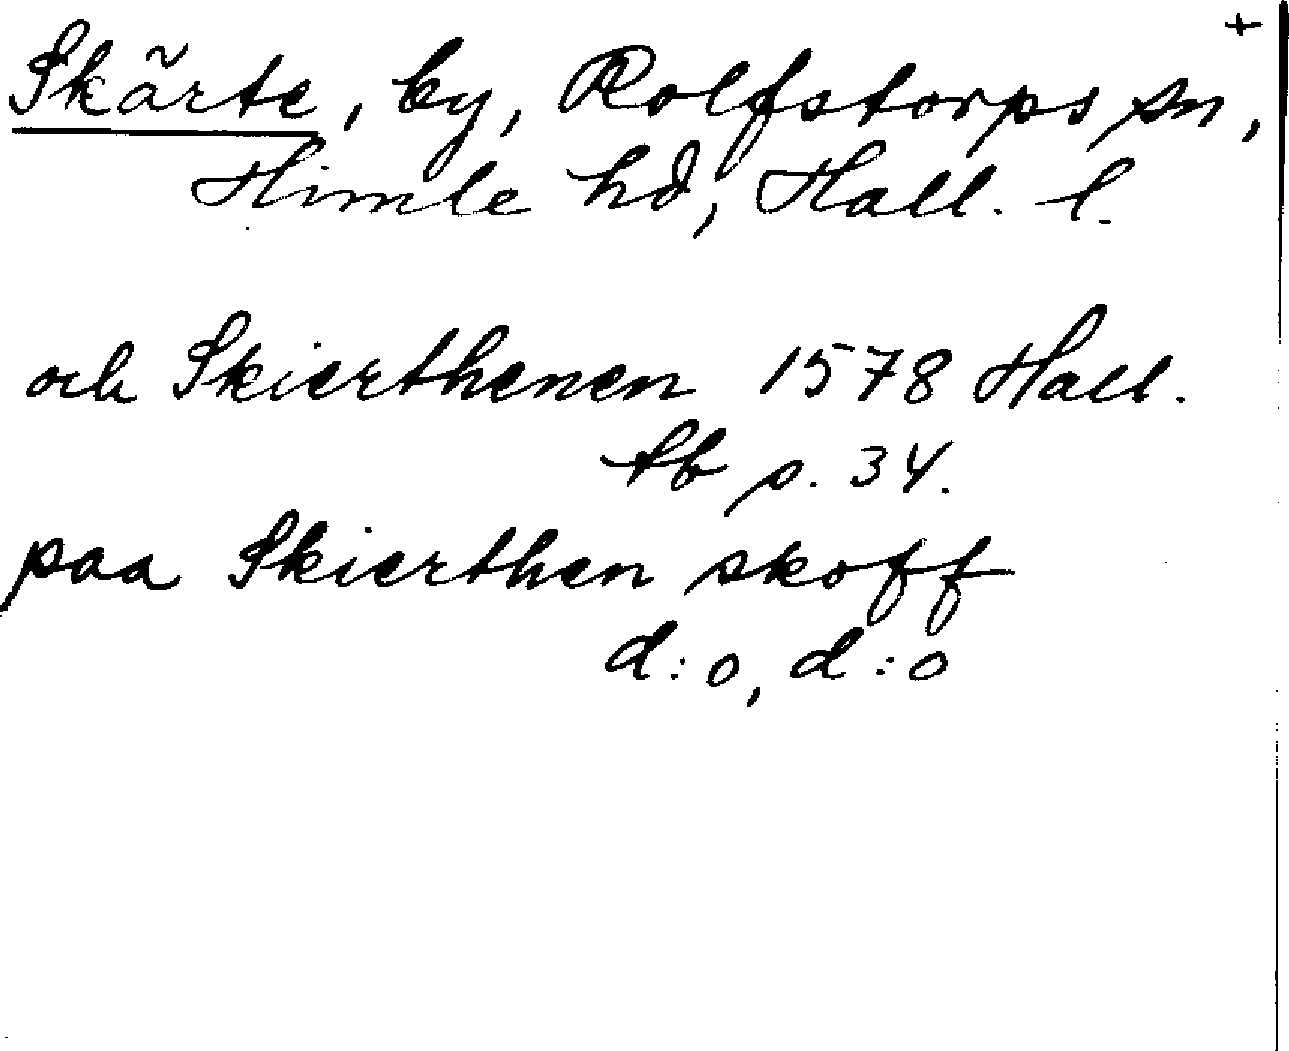 +
Skärte, by, Rolfstorps sn,
Himle hd, Hall. l.
och Skierthenen 1578 Hall.
tb s. 34.
paa Skierthen skoff
d:o, d:o